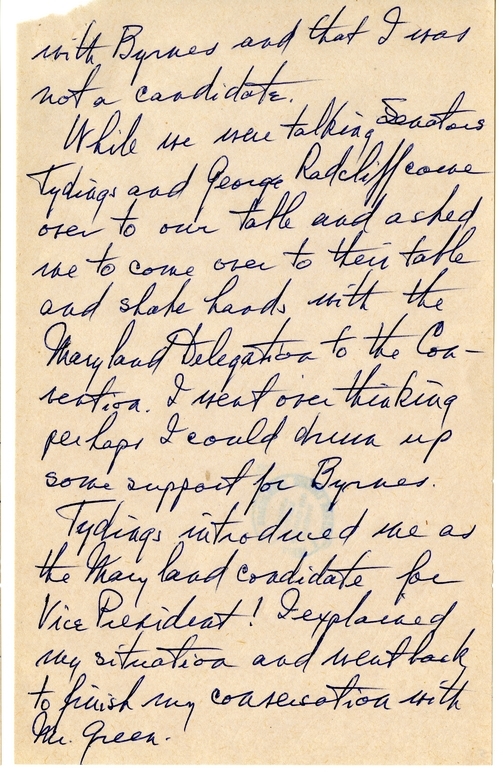 with Byrnes and that I was
not a candidate.
While we were talking Senators
Tydings and George Radcliff come
over to our table and asked
me to come over to their table
and shake hands with the
Maryland Delegation to the Con-
vention. I went over thinking
perhaps I could drum up
some support for Byrnes.
Tydings introduced me as
the Maryland candidate for
Vice President! I explained
my situation and went back
to finish my conversation with
Mr. Green.